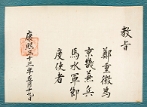 教旨
鄭重徽爲
京畿兼兵
馬水軍節
度使者
康熙三十三年五月十七日